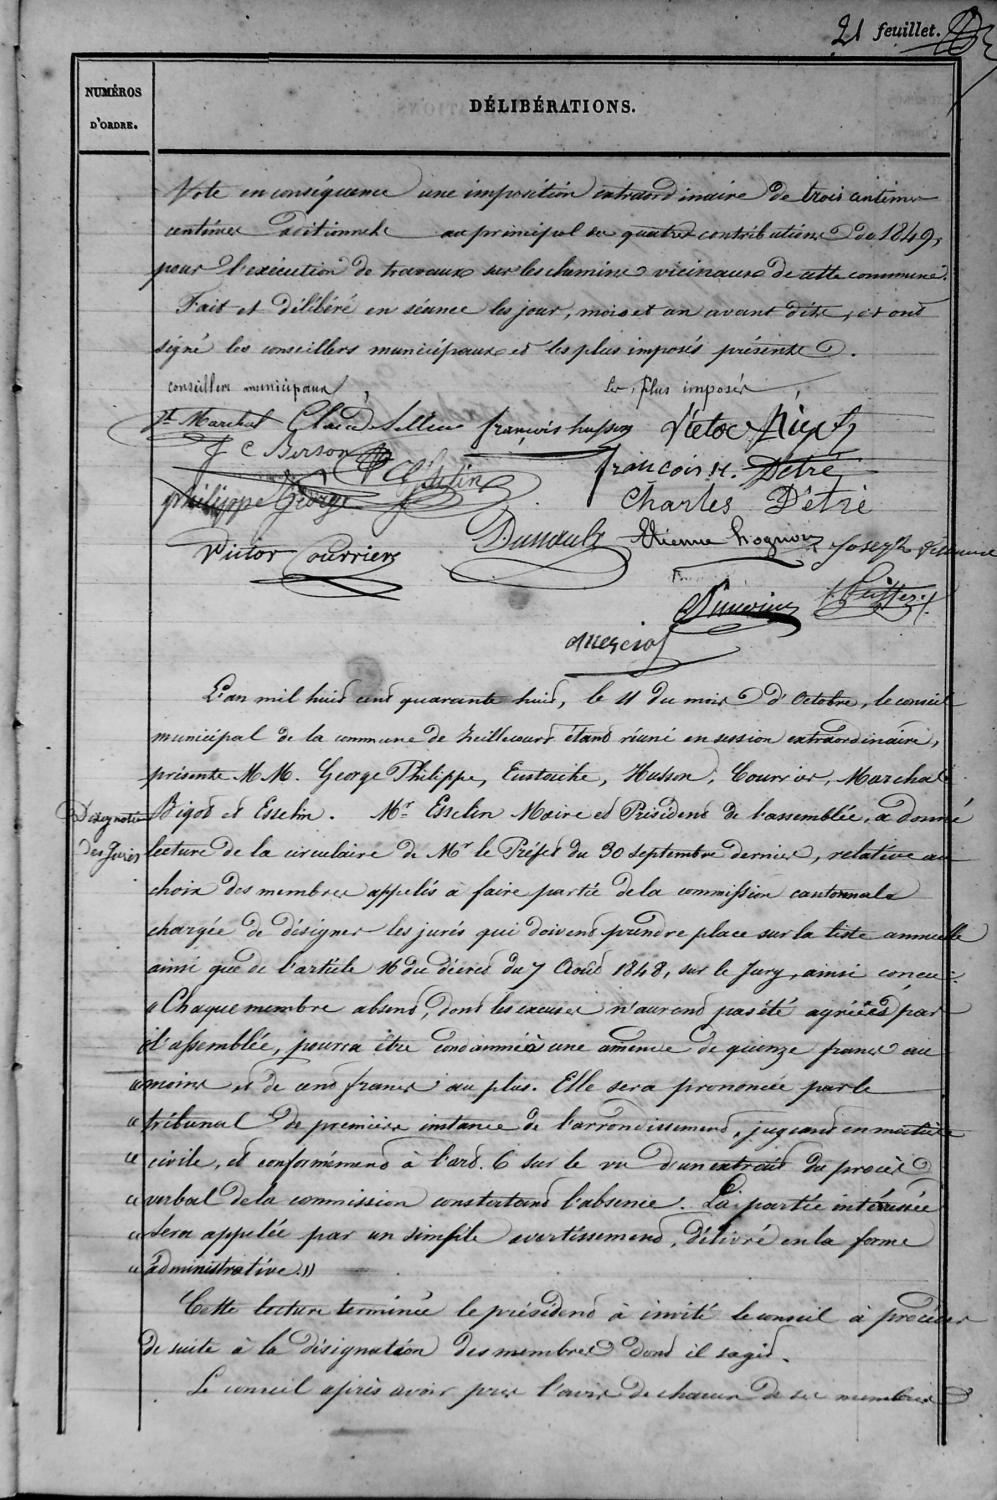 21 feuillet.
NUMÉROS
D'ORDRE.
DÉLIBÉRATIONS.
Vote en conséquence une imposition extraordinaire de trois centimes
centimes aditionnels au principal des quatres contributions de 1849,
pour l'exécution de travaux sur les chemins vicinaux de cette commune.
Fait et délibéré en séance les jour, mois et an avant dits, et ont
signé les conseillers municipaux et les plus imposés présents.
conseillers municipaux
Les plus imposés
Marchal
françois husson
J C Berson
françois H. Détré
philippe George
Charles Détré
Victor Courrier
Etienne
Joseph
L'an mil huit cent quarante huit, le 11 du mois d'Octobre, le conseil
municipal de la commune de étant réuni en session extraordinaire,
présents M M. George Philippe, Eustache, Husson, Courrier, Marchal
Bigot et Esselin. Mr Esselin Maire et Président de l'assemblée, a donné
Désignation
des Jurés
lecture de la circulaire de Mr le Préfet du 30 septembre dernier, relative au
choix des membres appelés a faire partie de la commission cantonnale
chargée de désigner les jurés qui doivent prendre place sur la liste annuelle
ainsi que de l'article 16 du décret du 7 Août 1848, sur le Jury, ainsi concu:
« Chaque membre absent, dont les excuses n'auront pas été agréées par
l'assemblée, pourra être condamné à une amende de quinze francs au
« moins et de cent francs au plus. Elle sera prononcée par le
« tribunal de première instance de l'arrondissement, jugeant en matière
« civile, et conformément à l'art. 6 sur le vu d'un extrait du procès
« verbal de la commission constatant l'absence. La partie intéressée
« sera appelée par un simple avertissement, délivré en la forme
« administrative. »
Cette lecture terminée le président à invité le conseil à procéder
de suite à la désignation des membres dont il s'agit.
Le conseil après avoir pris l'avis de chacun de ses membres